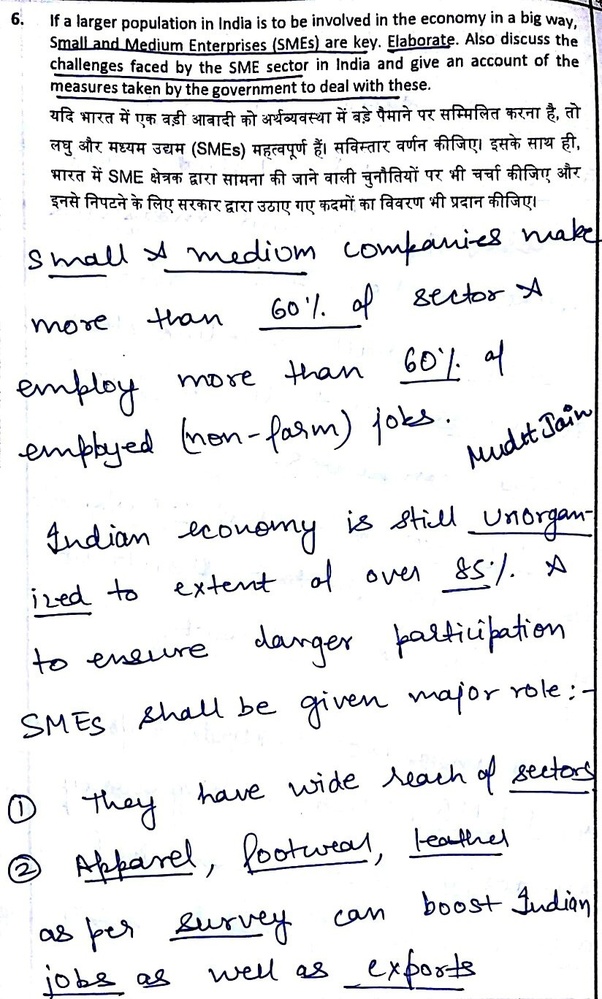 6. If a larger population in India is to be involved in the economy in a big way,
Small and Medium Enterprises (SMEs) are key. Elaborate. Also discuss the
challenges faced by the SME sector in India and give an account of the
measures taken by the government to deal with these.
यदि भारत में एक बड़ी आबादी को अर्थव्यवस्था में बड़े पैमाने पर सम्मिलित करना है, तो
लघु और मध्यम उद्यम (SMEs) महत्वपूर्ण हैं। सविस्तार वर्णन कीजिए। इसके साथ ही,
भारत में SME क्षेत्रक द्वारा सामना की जाने वाली चुनौतियों पर भी चर्चा कीजिए और
इनसे निपटने के लिए सरकार द्वारा उठाए गए कदमों का विवरण भी प्रदान कीजिए।
Small & medium companies make
more than 60% of sector &
employ more than 60% of
employed (non-farm) jobs.
Mudit Jain
Indian economy is still unorgan-
ized to extent of over 85% &
to ensure larger participation
SMEs shall be given major role:-
① They have wide reach of sectors
② Apparel, footwear, leather
as per survey can boost Indian
jobs as well as exports